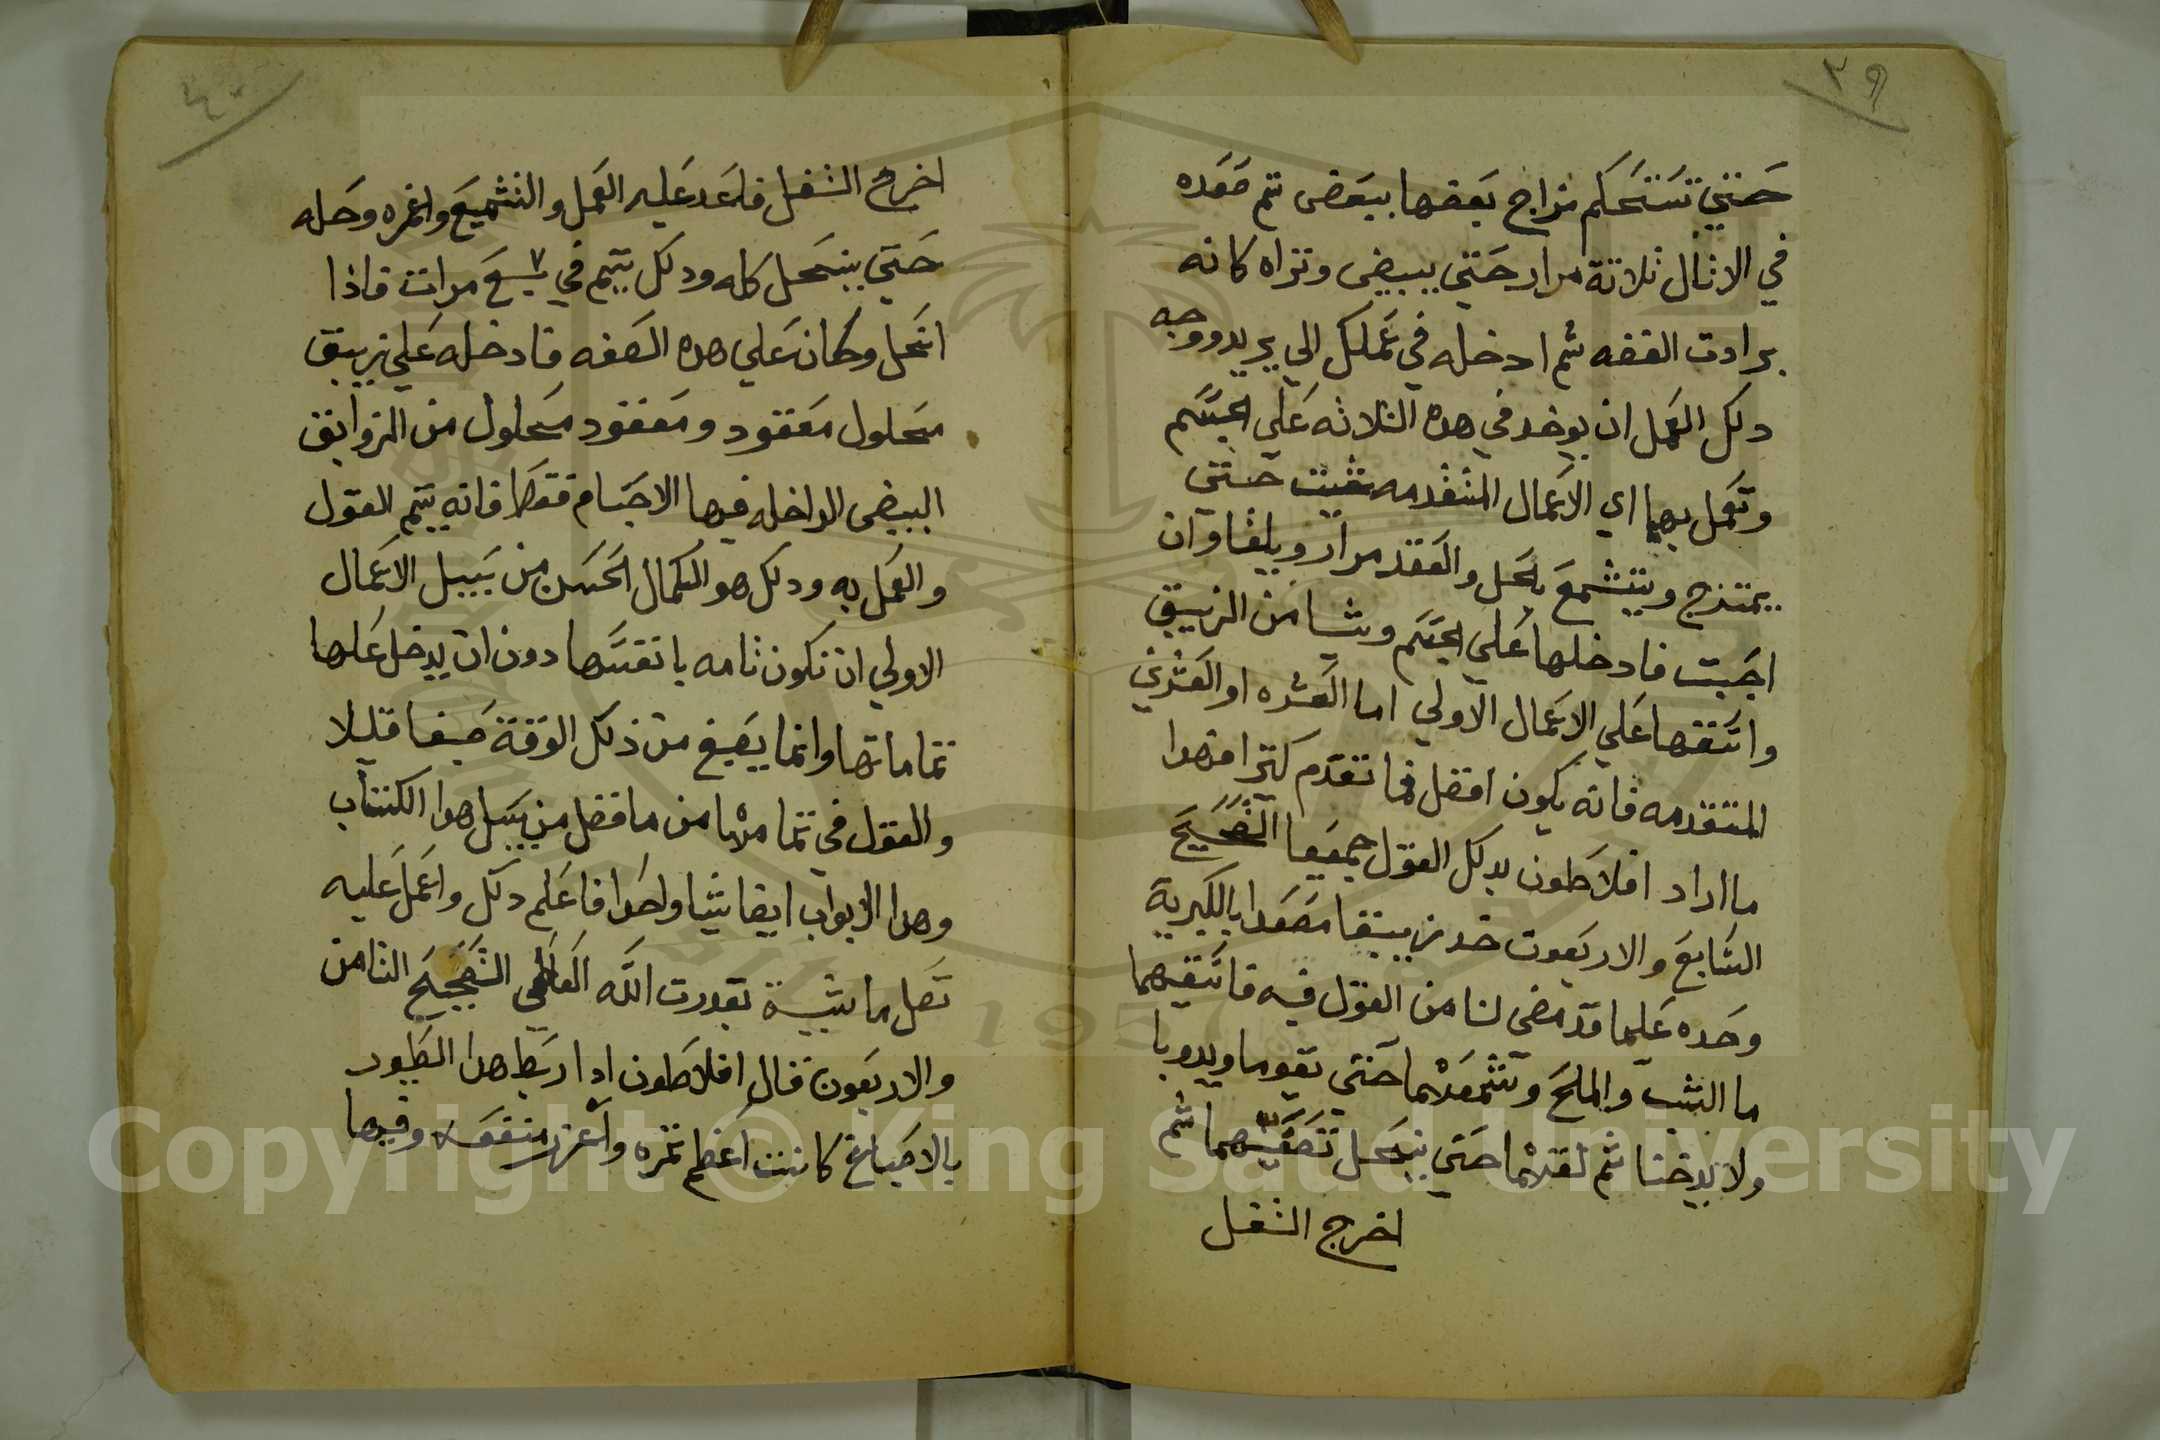 ٣٩
حتي تستحكم مزاج بعضها ببعض ثم صعده
في الاثال ثلاثة مرار حتي يبيض وتراه كانه
برادت الفضه ثم ادخله في عملك الي يريد ووجه
دلك العمل ان يوخد في هده الثلاثه علي الجسم
وتعمل بهما اي الاعمال المتقدمه شيت حتي
يمتزج ويتشمع بالحل والعقد مرار ويلقا وان
احببت فادخلها علي الجسم وشيا من الزيبق
واتسقها علي الاعمال الاولي اما العشره او العشرين
المتقدمه فانه يكون افضل مما تقدم كثيرا فهدا
ما اراد افلاطون بدلك القول جميعا التصحيح
السابع والاربعون خد زيبقا مصعدا بالكبريت
وحده علي ما قد مضي لنا من القول فيه فاسقيهما
ما الشب والملح وتشمعهما حتي يقوما ويدوبا
ولا يدخنا ثم لقتهما حتي ينحل تصفيهما ثم
اخرج الثفل
٤٠
اخرج الثفل فاعد عليه العمل والتشميع واغمره وحله
حتي ينحل كله ودلك يتم في سبع ٧ مرات فاذا
انحل وكان علي هده الصفه فادخله علي زيبق
محلول معقود ومعقود محلول من الزوابق
البيض الداخله فيها الاجسام فقط فانه يتم القول
والعمل به ودلك هو الكمال الحسن من سبيل الاعمال
الاولي ان تكون تامه بانفسها دون ان يدخل عليها
تماماتها وانما يصبغ من ذلك الوقة صبغا قليلا
والقول في تمامها من ما فضل من سبيل هدا الكتاب
وهدا الابواب ايضا شيا واحدا فاعلم دلك واعمل عليه
تصل ما شية بقدرت الله العالي التصحيح الثامن
والاربعون قال افلاطون ادا ربط هدا الطيور
بالاصباغ كانت اعظم ثمره واعز منفعه وفيها